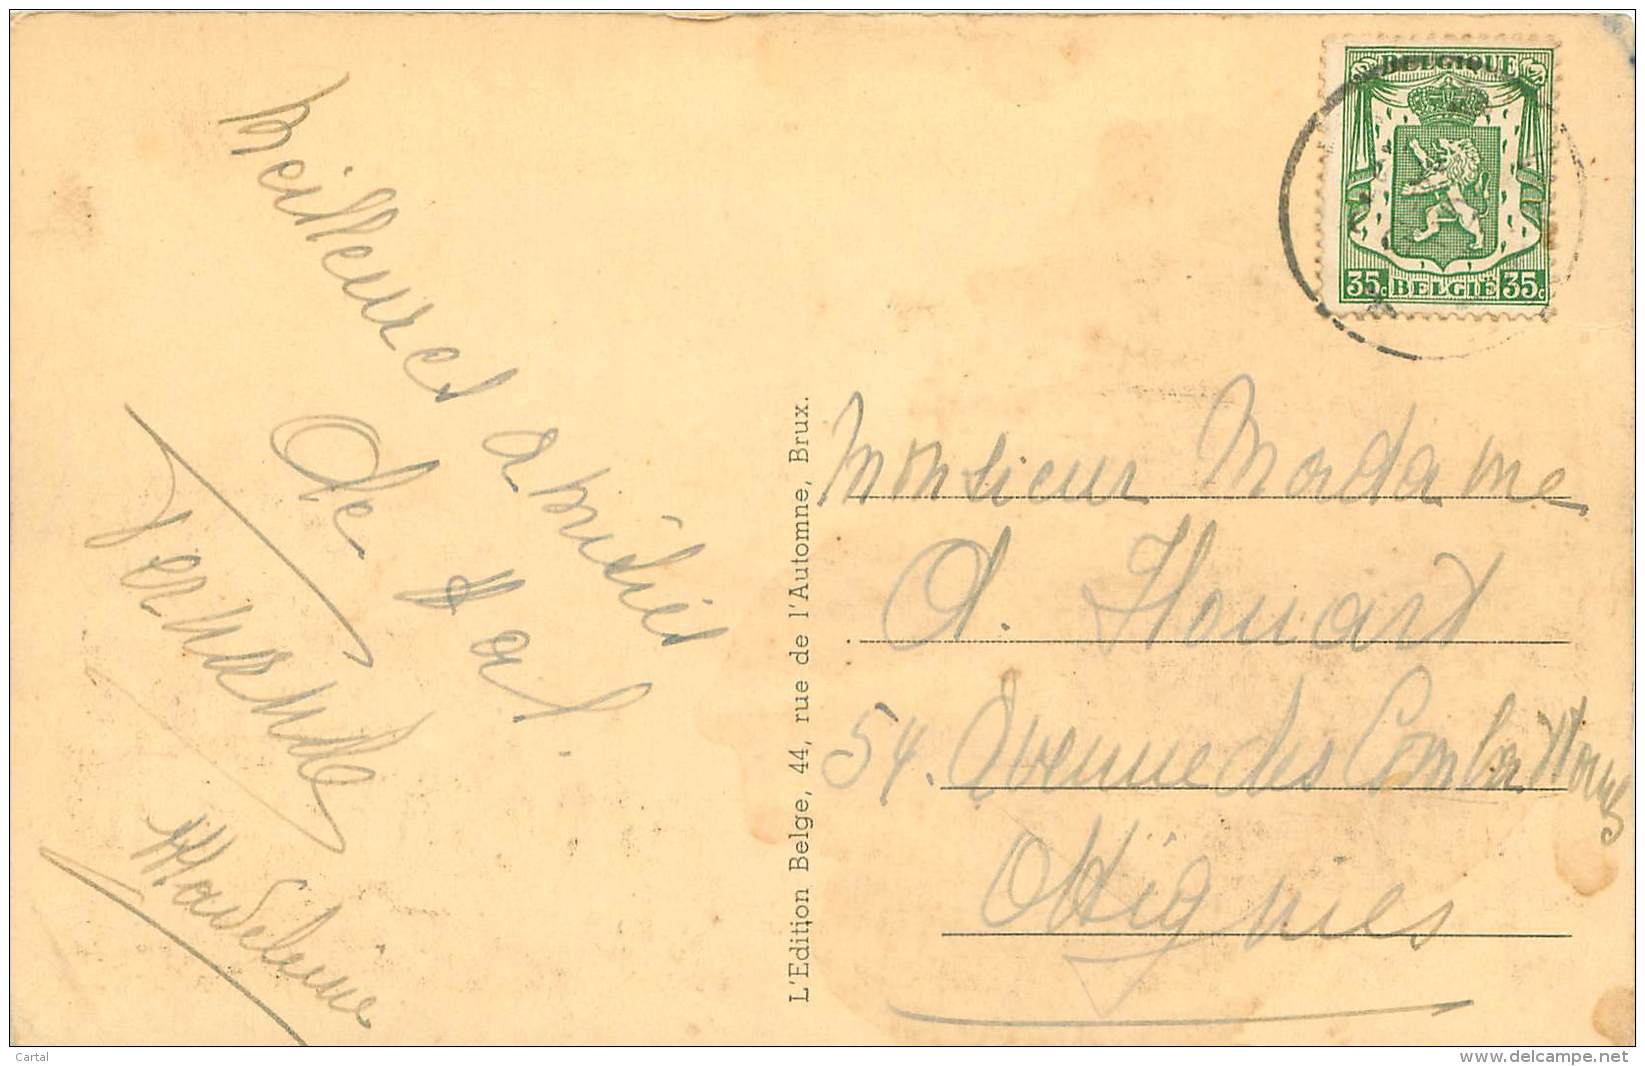 Meilleures amitiés
de Hal.
Fernande
Madeleine
L'Edition Belge, 44, rue de l'Automne, Brux.
BELGIQUE
35c BELGIË 35c
Monsieur Madame
A. Houart
54. Avenue des Combattants
Ottignies
Cartal
delcampe.net